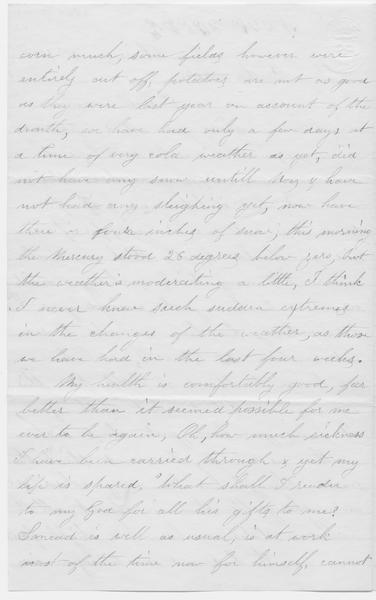 corn much, some fields however were
entirely cut off, potatoes are not as good
as they were last year on account of the
drouth, we have had only a few days at
a time of very cold weather as yet, did
not have any snow untill &
not had any sleighing yet, now have
three or four inches of snow, this morning
the Mercury stood 26 degrees below zero, but
the weather's moderating a little, I think
I never knew such sudden extremes
in the changes of the weather, as those
we have had in the last four weeks.
My health is comfortably good, far
better than it seemed possible for me
ever to be again, Oh, how much sickness
I have been carried through & yet my
life is spared, "What shall I render
to my God for all his gifts to me?
is well as usual, is at work
most of the time now for himself, cannot